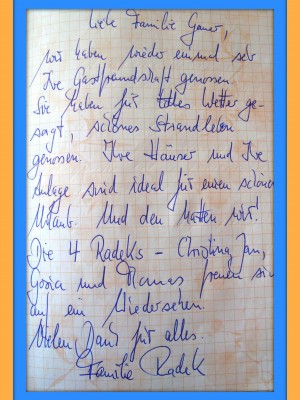 Liebe Familie Gauer,
wir haben wieder einmal sehr
Ihre Gastfreundschaft genossen.
Sie haben für tolles Wetter ge-
sorgt, schönes Strandleben
genossen. Ihre Häuser und Ihre
Anlage sind ideal für einen schönen
Urlaub. Und den hatten wir!
Die 4 Radeks – Christina, Jan,
Gosia und Tomas freuen sich
auf ein Wiedersehen.
Vielen Dank für alles.
Familie Radek